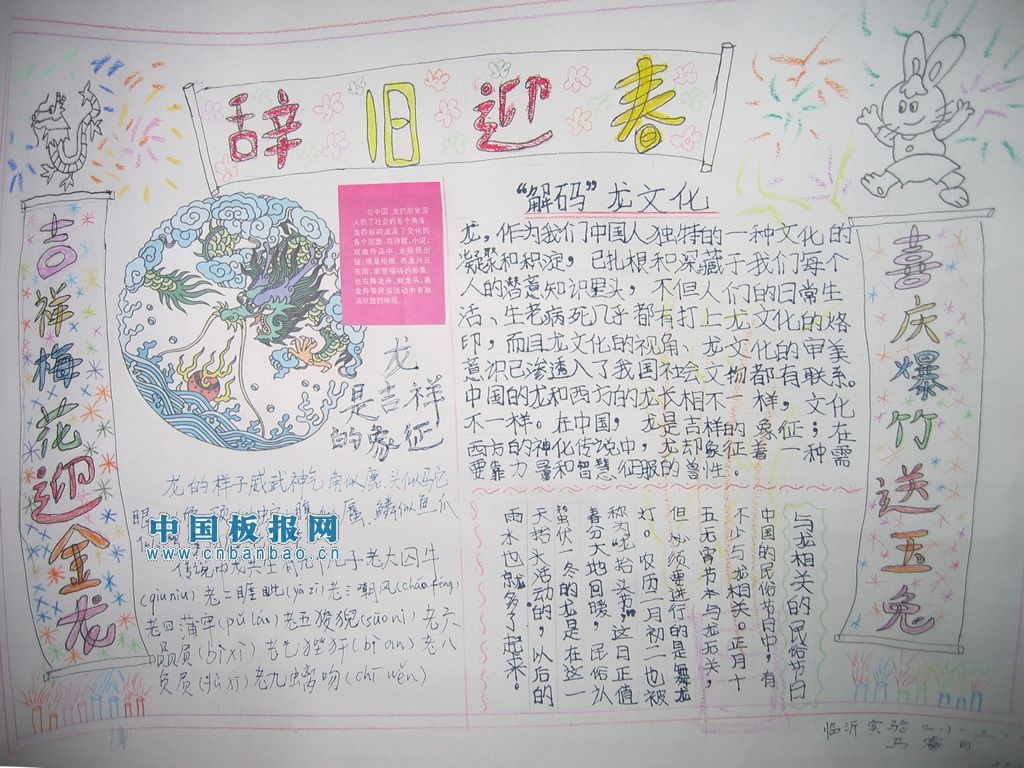 辞旧迎春
吉祥梅花迎金龙
在中国,龙的形象深
入到了社会的各个角落,
龙的影响波及了文化的
各个层面,在诗歌、小说、
戏曲作品中,龙频频出
布雨、掌管福祸的形象,
也在舞龙舟、剃龙头、赛
龙舟等民俗活动中有淋
漓尽致的体现。
龙
是吉祥
的象征
龙的样子威武神气,角似鹿、头似马
眼
中国板报网
www.cnbanbao.cn
传说中龙共生有九个儿子老大囚牛
(qiu niu)老二睚眦(yá zì)老三潮风(cháo fēng)
老四蒲牢(pǔ láo)老五狻猊(suān ní)老六
(bì xì)老七狴犴(bì àn)老八
老九螭吻(chī wěn)
“解码”龙文化
龙,作为我们中国人独特的一种文化的
凝聚和积淀,已扎根和深藏于我们每个
人的潜意知识里头,不但人们的日常生
活、生老病死几乎都有打上龙文化的烙
印,而且龙文化的视角、龙文化的审美
意识已渗透入了我国社会文物都有联系。
中国的龙和西方的龙长相不一样,文化
不一样。在中国,龙是吉祥的象征;在
西方的神化传说中,龙却象征着一种需
要靠力量和智慧征服的兽性。
与龙相关的民俗节日
中国的民俗节日中,有
不少与龙相关。正月十
五元宵节本与龙无关
但必须要进行的是舞龙
灯。农历二月初二也被
称为“龙抬头节”,这日正值
春分大地回暖,民俗认
蛰伏一冬的龙是在这一
天抬头活动的,以后的
雨水也就多了起来。
喜庆爆竹送玉兔
临沂实验